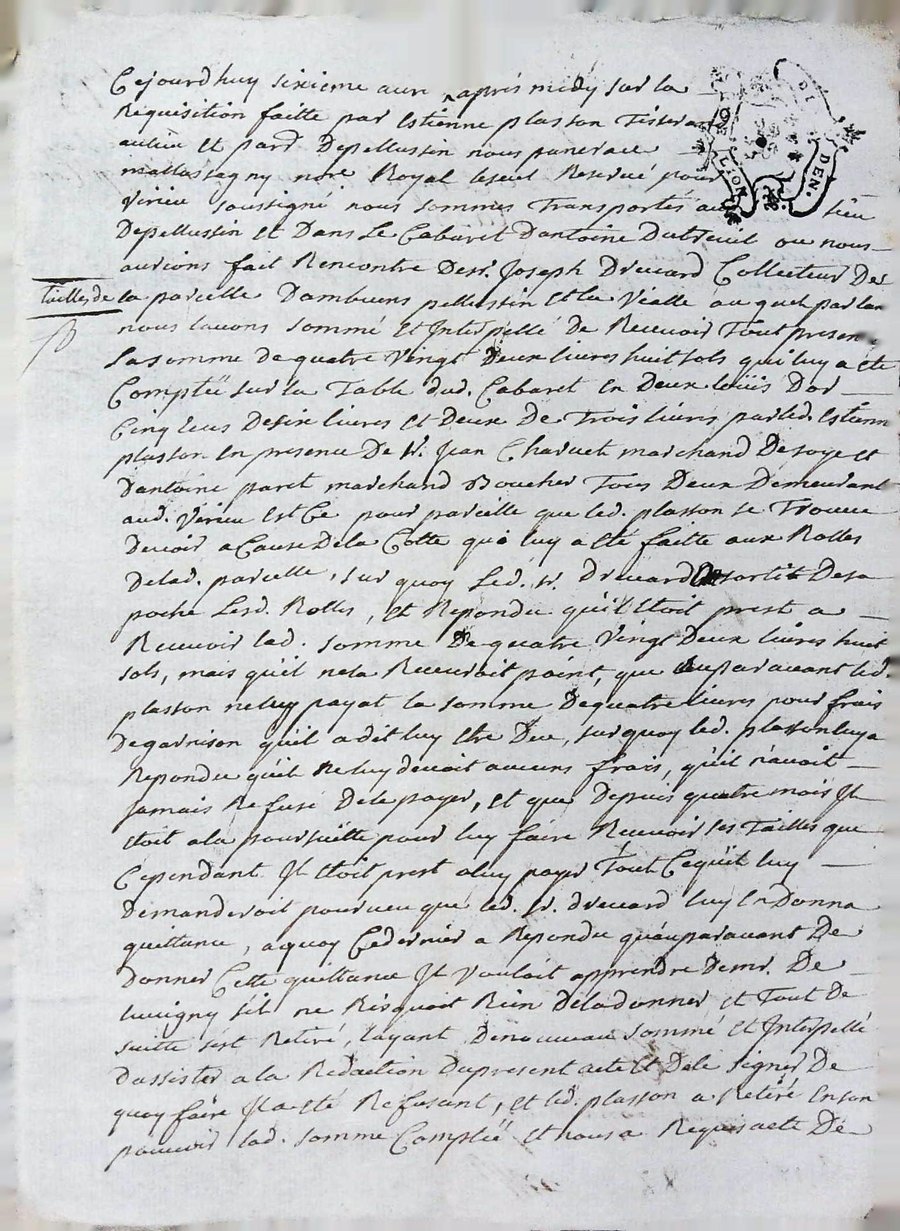 Cejourdhuy sixieme avril après midy sur la
Requisition faitte par Estienne plasson Tisserand
aulieu et parr Depellussin nous panerace
mallassagny nore Royal Reservé pour
Virieu soussigné nous sommes Transportés au lieu
Depellussin et Dans Le Cabaret Dantoine Dutreuil ou nous
aurions fait Rencontre Desr. Joseph Drevard Collecteur Des
tailles de la parcelle Dambuens pellussin et La Vialle auquel parlan
nous lavons sommé et Interpellé de Recevoir Tout presen.
La somme de quatre Vingt Deux livres huit sols qui luy a ete
Comptéë sur la Table dud. Cabaret En Deux loüis Dor
Cinq Ecus Desix livres et Deux De Trois livres parled. Estienn
plasson En presence De Sr. Jean Charvet marchand Desoye et
Dantoine paret marchand Boucher Tous Deux Demeurant
aud. Virieu Est Ce pour parcelle que led. plasson se Trouve
Devoir a Cause Dela Cotte qui luy a Eté faitte aux Rolles
Delad. parcelle, sur quoy Led. sr. Drevard a sortit Desa
poche Lesd. Rolles, et Repondu qu'il Etoit prest a
Recevoir lad. somme De quatre Vingt Deux livres huit
sols, mais qu'il nela Recevroit point, que auparavant led.
plasson neluy payat la somme Dequatre livres pour frais
Degarnison qu'il a dit luy Etre Due, surquoy led. plasson luy a
Repondu qu'il ne luy devoit aucuns frais, qu'il n'avoit
jamais Refusé Dele payer, et que Depuis quatre mois Il
Etoit ala poursuitte pour luy faire Recevoir ses Tailles que
Cependant Il Etoit prest aluy payer Tout Cequ'il luy
Demanderoit pourveu que led. sr. drevard luy En Donna
quittance, aquoy Cedernier a Repondu qu'auparavant De
Donner Cette quittance Il Vouloit apprendre Demr. De
Luvigny sil ne Risquoit Rien Dela donner et Tout De
suitte sest Retiré, layant Denouveau sommé et Interpellé
Dassister ala Redaction Dupresent acte et Dele signer De
quoy faire Il a Eté Refusant, et led. plasson a Retiré Enson
pouvoir lad. somme Comptéë et nous a Requis acte De
LION
DEN.